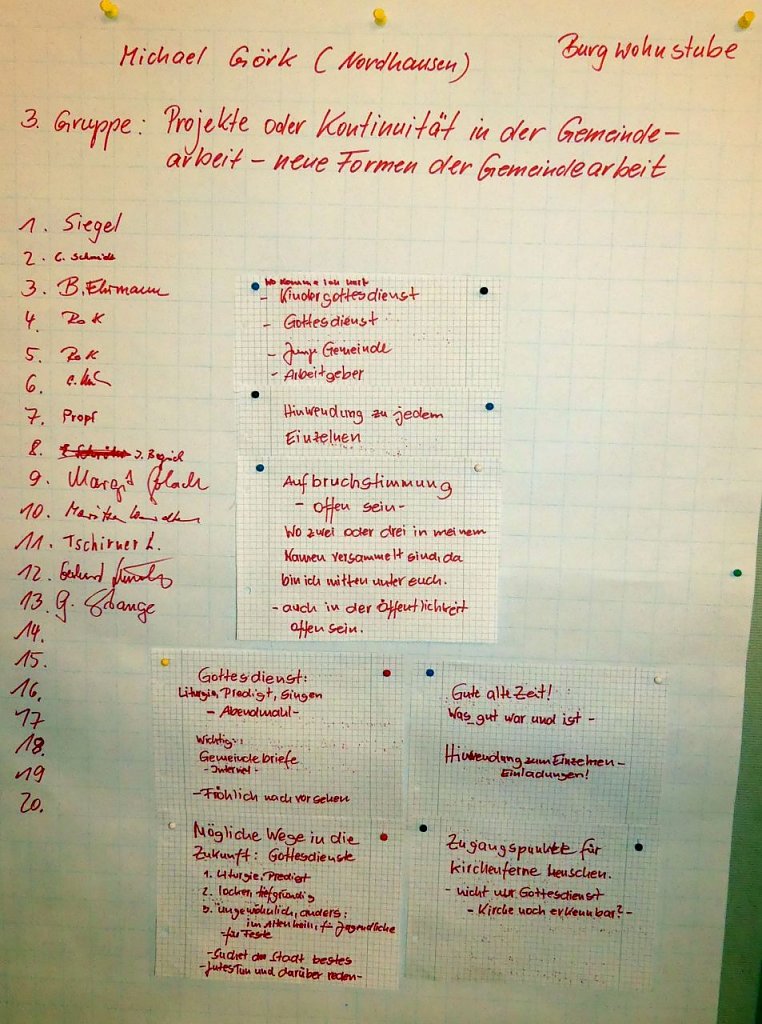 Michael Görk (Nordhausen)
Burgwohnstube
3. Gruppe: Projekte oder Kontinuität in der Gemeinde-
arbeit – neue Formen der Gemeindearbeit
1. Siegel
2. C. Schmidt
3. B. Ehrmann
4.
5.
6.
7. Propf
8.
9. Margit
10.
11. Tschirner L.
12.
13. G.
14.
15.
16.
17
18.
19
20.
Wo komme ich her?
- Kindergottesdienst
- Gottesdienst
- Junge Gemeinde
- Arbeitgeber
Hinwendung zu jedem
Einzelnen
Aufbruchstimmung
- offen sein -
Wo zwei oder drei in meinem
Namen versammelt sind, da
bin ich mitten unter euch.
- auch in der Öffentlichkeit
offen sein.
Gottesdienst:
Liturgie, Predigt, Singen
- Abendmahl -
Wichtig:
Gemeindebriefe
- Internet -
- Fröhlich nach vor sehen
Gute alte Zeit!
Was gut war und ist -
Hinwendung zum Einzelnen -
Einladungen!
Mögliche Wege in die
Zukunft: Gottesdienste
1. Liturgie, Predigt
2. locker, tiefgründig
3. ungewöhnlich, anders:
im Altenheim, f. Jugendliche
- für Feste
- Suchet der Stadt bestes
- Gutes Tun und darüber reden -
Zugangspunkte für
kirchenferne Menschen.
- nicht nur Gottesdienst
- Kirche noch erkennbar? -